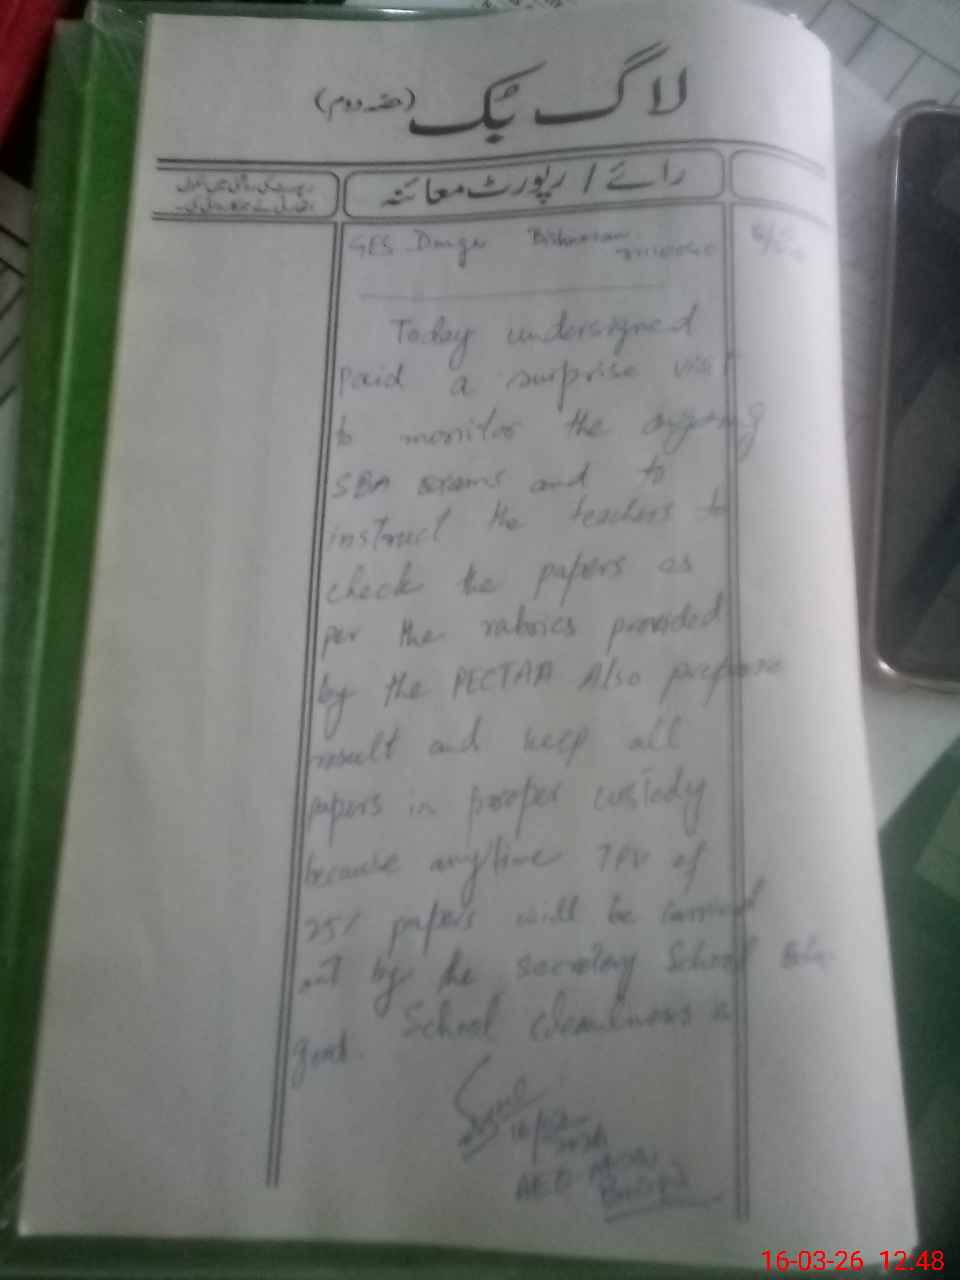 لاگ بک (حصہ دوم)
رائے / رپورٹ معائنہ
GES
Today undersigned
Paid a surprise visit
to monitor the ongoing
SBA exams and to
instruct the teachers to
check the papers as
per the rubrics provided
by the PECTAA Also prepare
result and keep all
papers in proper custody
because anytime TPV of
25% papers will be carried
out by the secretary School
good. School cleanliness is
AEO
16-03-26 12:48